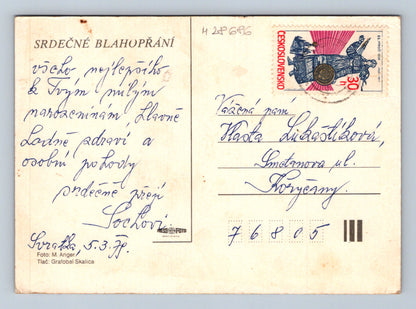 SRDEČNÉ BLAHOPŘÁNÍ
4 28 686
všeho nejlepšího
k Tvým milým
narozeninám. Hlavně
hodně zdraví a
osobní pohody
srdečně přejí
Sochovi
Svratka, 5.3.79.
Foto: M. Anger
Tlač: Grafobal Skalica
ČESKOSLOVENSKO
30 h
Vážená paní
Vlasta Lukaštíková
Smetanova ul.
Koryčany
76805